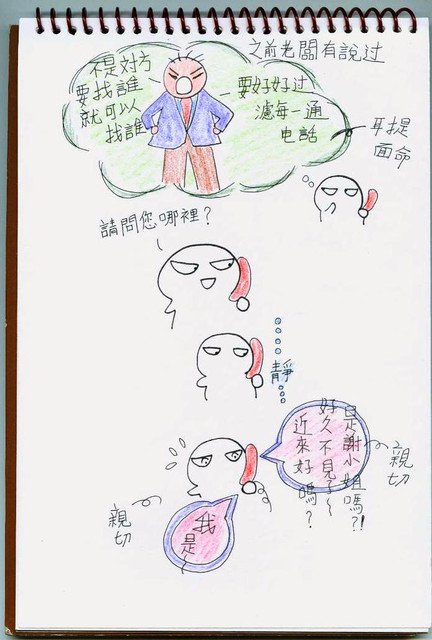 之前老闆有說过
不是対方
要找誰
就可以
找誰
要好好过
濾每一通
电話
耳提
面命
請問您哪裡？
靜
是謝小姐嗎?!
好久不見了~
近來好嗎？
親切
我
是~
親切